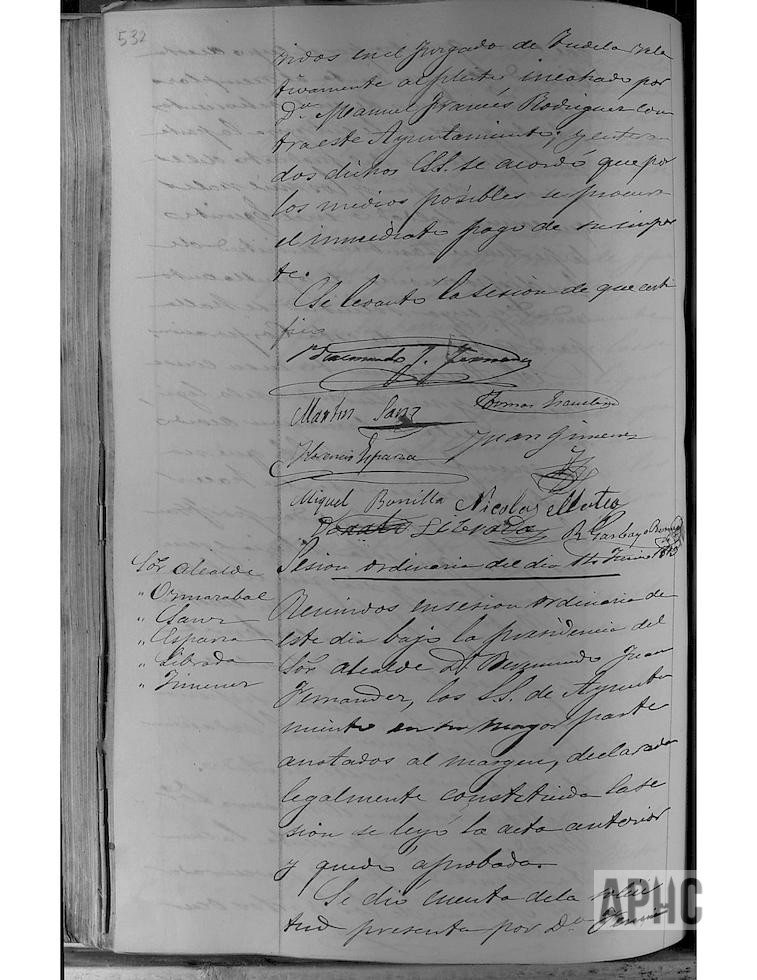 532
nidos en el Juzgado de Tudela rela
tivamente al pleito incohado por
Dn. Manuel Francés Rodriguez con
tra este Ayuntamiento; y entera
dos dichos S.S. se acordó que por
los medios posibles se procure
el inmediato pago de su impor
te.
Se levantó la sesion de que certi
fico
Raimundo J. Fernandez
Martin Sanz
Tomas Escudero
Juan Gimenez
España
Miguel Bonilla Nicolas Mateo
Librada
R. Garbayo
Sesion ordinaria del dia Junio
Sor. Alcalde
" Ormazabal
" Sanz
" España
" Librada
" Jimenez
Reunidos en sesion ordinaria de
este dia bajo la presidencia del
Sor. Alcalde Dn. Raymundo Juan
Fernandez, los S.S. de Ayunta
miento en su mayor parte
anotados al margen, declarada
legalmente constituida la se
sion se leyó la acta anterior
y quedó aprobada.
Se dió cuenta de la solici
tud presentada por Dn.
APHC